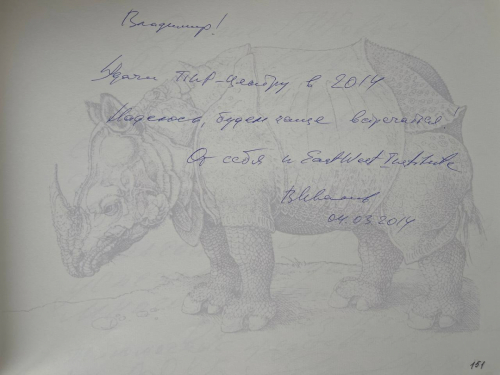 Владимир!
Удачи ПИР-Центру в 2014
Надеюсь, будем чаще встречаться
От себя и EastWest Institute
04.03.2014
151